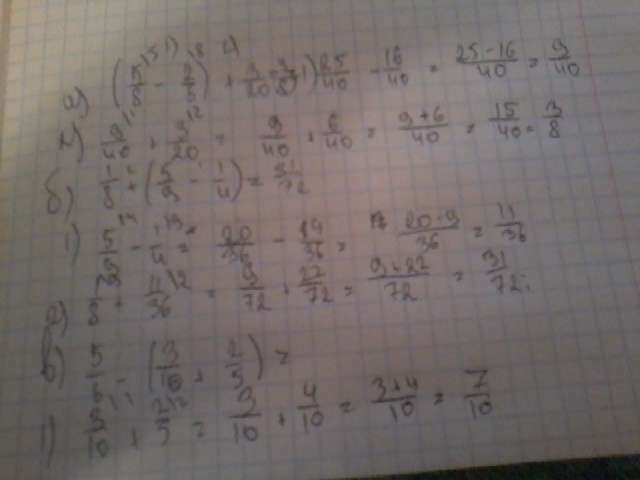 а) (5/8 - 2/5) + 3/20 = 3/8 1) 25/40 - 16/40 = 25-16/40 = 9/40
2) 9/40 + 3/20 = 9/40 + 6/40 = 9+6/40 = 15/40 = 3/8
б) 1/8 + (5/9 - 1/4) = 31/72
1) 5/9 - 1/4 = 20/36 - 9/36 = 20-9/36 = 11/36
2) 1/8 + 11/36 = 9/72 + 22/72 = 9+22/72 = 31/72;
в) 5/6 - (3/10 + 2/5) =
1) 3/10 + 2/5 = 3/10 + 4/10 = 3+4/10 = 7/10